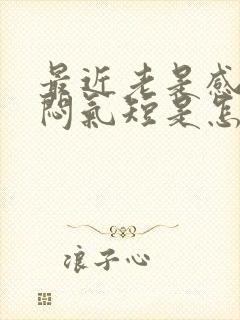 最近老是感
闷气短是怎
浪子心